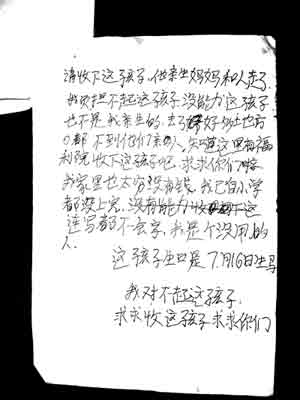 请收下这孩子,他亲生妈妈和人走了
我对不起这孩子没能力这孩子
也不是我亲生的.去了好 地方
都 不到他们亲人,知道这里有福
利院收下这孩子吧.求求你们
我家里也太穷没有钱,我已 小学
都没上完,没有能力 这
连写都不会写,我是个没用的
人.
这孩子生日是7月16日生马
我对不起这孩子,
求求收这孩子求求你们